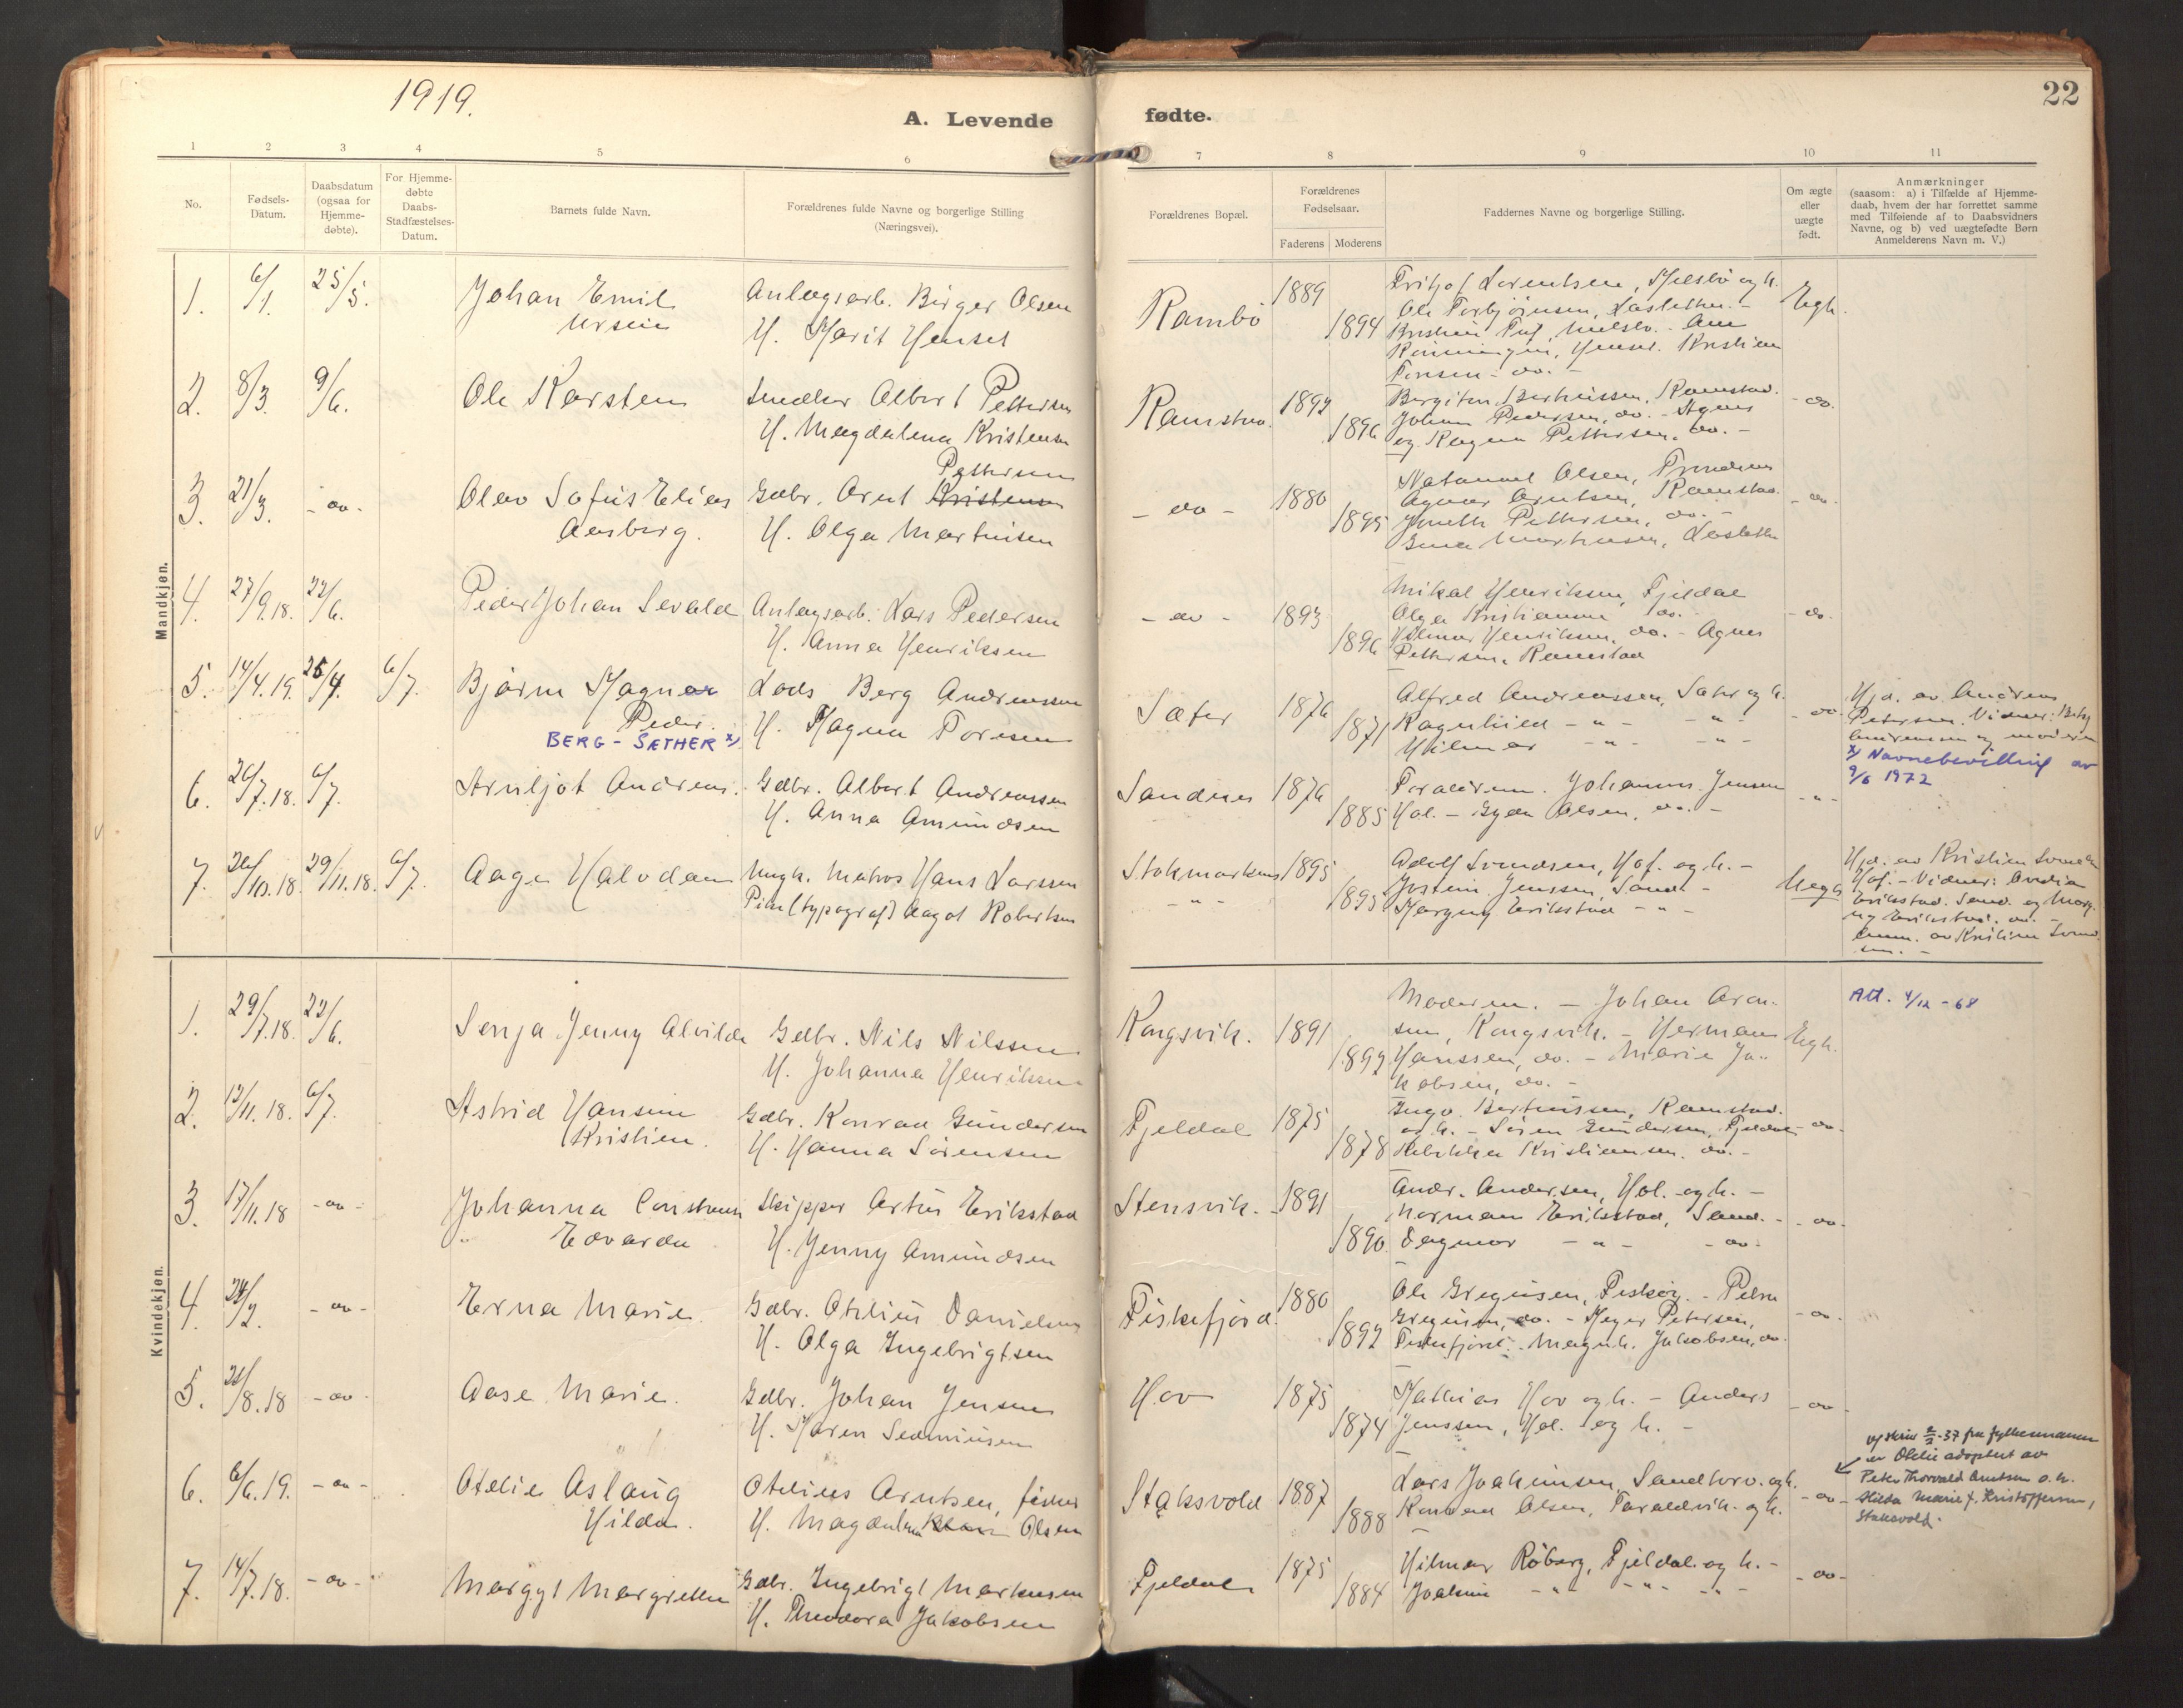 1919.
A. Levende
fødte.
22
1 2 3 4 5 6
7 8 9 10 11
No.
Fødsels-
Datum.
Daabsdatum
(ogsaa for
Hjemme-
døbte).
For Hjemme-
døbte
Daabs-
Stadfæstelses-
Datum.
Barnets fulde Navn.
Forældrenes fulde Navne og borgerlige Stilling
(Næringsvei).
Forældrenes Bopæl.
Forældrenes
Fødselsaar.
Faderens Moderens
Faddernes Navne og borgerlige Stilling.
Om ægte
eller
uægte
født.
Anmærkninger
(saasom: a) i Tilfælde af Hjemme-
daab, hvem der har forrettet samme
med Tilføiende af to Daabsvidners
Navne, og b) ved uægtefødte Børn
Anmelderens Navn m. V.)
Mandkjøn.
1. 6/1. 25/5. Johan Emil Anlægsarb. Birger Olsen
H. Marit Hensel
Rambö 1889 1894
Fritjof Lorentsen, og h.
Ole Torbjörnsen,
Egh.
2. 8/3. 9/6. Ole Karsten Albert Pettersen
H. Magdalena Kristensen
Ramstad. 1892 1896
Johan Pedersen, do. - Agnes
og Ragna Pettersen, do. -
- do.
3. 21/3. - do - Olav Sofus Elias Gdbr. Arnt Kristensen
Pettersen
Aasberg. H. Olga Martinsen
- do - 1880 1895
Natanael Olsen,
Agnar Arntsen, Ramstad
Pettersen, do. -
- do -
4. 27/9.18. 22/6. Peder Johan Sevald Anlægsarb. Lars Pedersen
H. Anna Henriksen
- do - 1893 1896
Mikal Henriksen, Fjeldal
Olga Kristiansen do.
Hilmar Henriksen, do. - Agnes
Pettersen, Ramstad
- do.
5. 14/4.19. 25/4. 6/7. Bjarne Magnar Lods Berg Andreassen
Peder. H. Magna Toresen
BERG - SÆTHER x)
Sæter 1876 1871
Alfred Andreassen, Sæter og h.
Ragnhild - " - - " -
Hilmar - " - - " -
- do.
Hjd. av Andreas
Petersen. Vidner: Berg
Andreassen og moderen
x) Navnebevilling av
9/6 1972
6. 26/7.18. 6/7. Arnljot Andreas. Gdbr. Albert Andreassen
H. Anna Amundsen
Sandnes 1876 1885
Forældrene. Johannes Jensen
Hol. - Gyda Olsen, do. -
- " -
7. 26/10.18. 29/11.18. 6/7. Aage Halvdan Ungk. Matros Hans Larssen
Pike (typograf) Dagot Robertsen
Stokmarknes 1895
- " - 1895
Adolf Svendsen, Hof. og h. -
Jostein Jenssen, Sand -
Margny Erikstad - " -
Uegh.
Hjd. av Kristine Svendsen
Hof. - Vidner:
Erikstad. Sand. og Marg-
ny Erikstad. do. -
Anm. av Kristine Svend-
sen. -
Kvindekjøn.
1. 29/7.18. 22/6. Senja Jenny Alvilde Gdbr. Nils Nilssen
H. Johanna Henriksen
Kongsvik. 1891 1892
Moderen. - Johan Aron-
sen, Kongsvik. - Herman
Hanssen, do. - Marie Ja-
kobsen, do. -
Egh.
Att. 4/12 - 68
2. 12/11.18. 6/7. Astrid Hansine Gdbr. Konrad Gundersen
Kristine. H. Hanna Sörensen
Fjeldal 1875 1878
Ingv. Berthinssen, Ramstad.
og h. - Sören Gundersen, Fjeldal
Rebekka Kristiansen. do. -
- do -
3. 17/11.18 - do - Johanna Constanse Skipper Artur Erikstad
" Edvarda H. Jenny Amundsen
Stensvik. 1891 1890.
Andr. Andersen, Hol. og h. -
Norman Erikstad, Sand. -
Dagmar - " - - do -
- do -
4. 24/2. - do - Erna Marie Gdbr. Otelius Danielsen
H. Olga Ingebrigtsen
Fiskefjord. 1880 1892
Ole Gregusen, - Petra
Gregusen, do. - Petersen,
Fiskefjord. - Magnh. Jakobsen, do.
- do -
5. 28/8.18 - do - Aase Marie. Gdbr. Johan Jensen
H. Maren Sedniusen
Hov 1875 1874
Mathias Hov og h. - Anders
Jenssen, Hol. og h. -
- do -
6. 6/6.19. - do - Otelie Aslaug Otelius Arntsen, fisker
Hilda. H. Magdalena Olsen
Staksvold 1887 1888
Lars Joakimsen, Sandtorv. og h.
Konrad Olsen, Taraldsvik. og h.
- do -
2/2 - 37 fra fylkesmannen
er Otelie adoptert av
Peter Thorvald Arntsen o. h.
Hilda Marie f. Kristoffersen,
Staksvold.
7. 14/7.18. - do - Margyt Margrethe Gdbr. Ingebrigt Markusen
H. Theodora Jakobsen
Fjeldal 1875 1884
Hilmar Röberg, Fjeldal og h. -
Joakim - " - - " - - " -
- do -